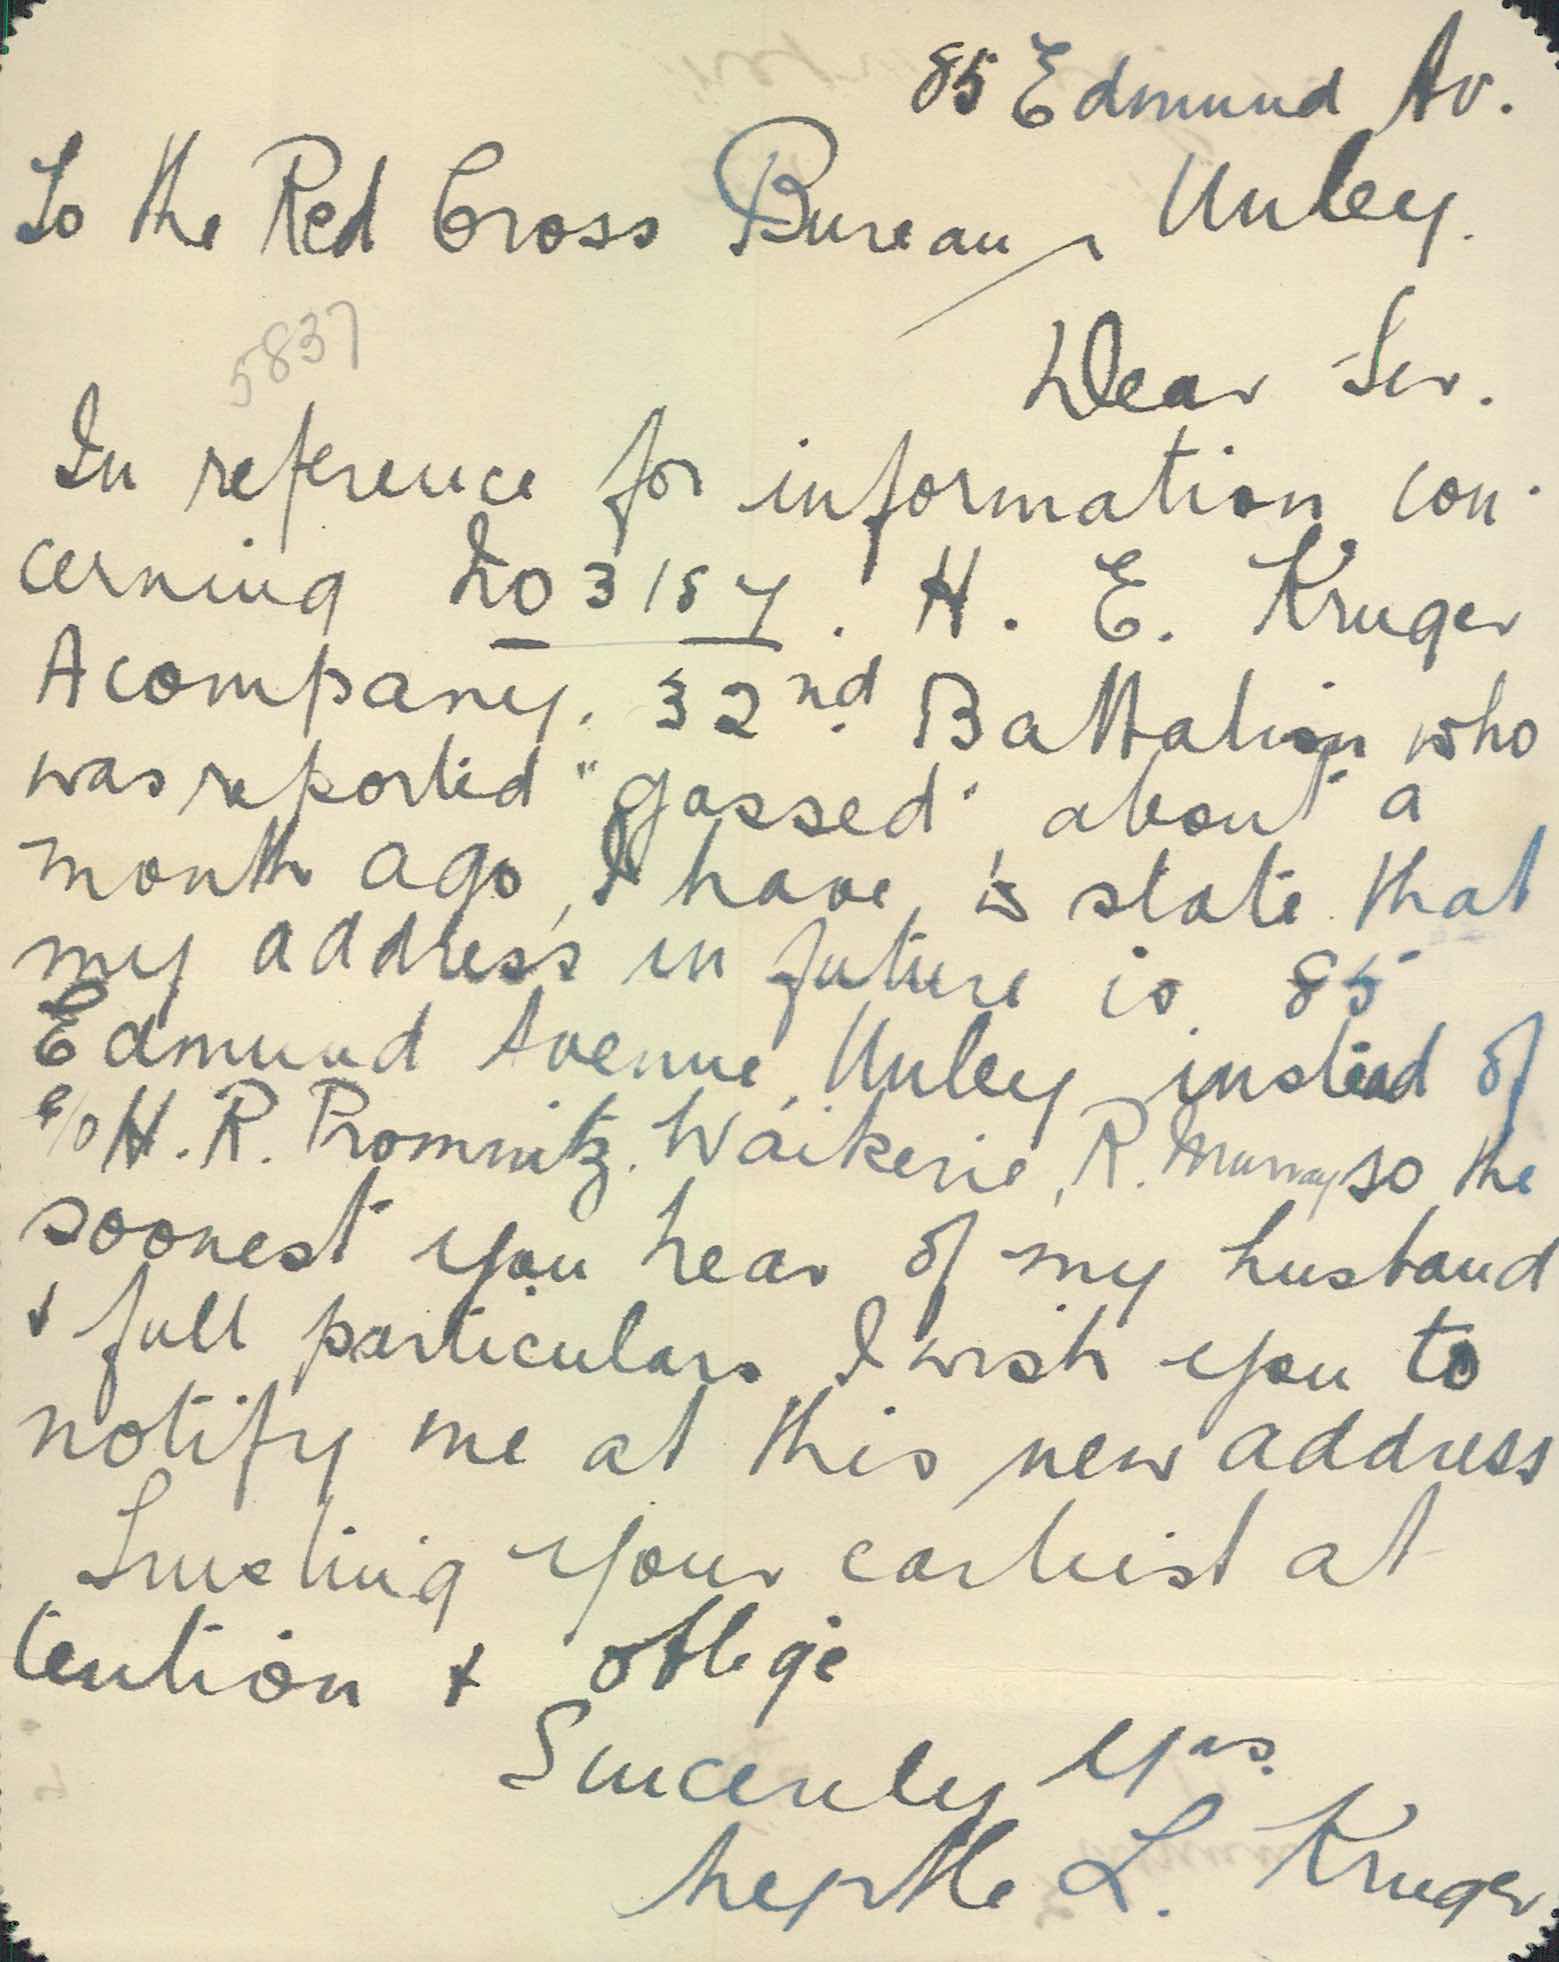 85 Edmund Av.
Unley.
To the Red Cross Bureau,
5837
Dear Sir.
In reference for information con-
cerning No 3157. H. E. Kruger
A company. 32nd Battalion who
was reported "gassed" about a
month ago, I have to state that
my address in future is 85
Edmund Avenue, Unley instead of
c/o H. R. Promnitz. Waikerie, R. Murray so the
soonest you hear of my husband
& full particulars I wish you to
notify me at this new address
Trusting your earliest at-
tention & oblige
Sincerely yrs.
Myrtle L. Kruger